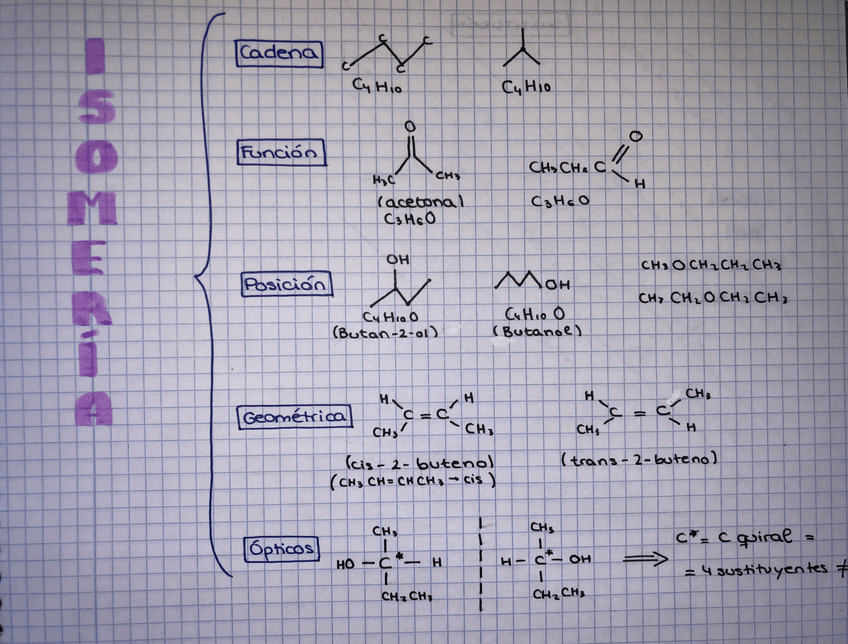 ISOMERÍA
Cadena
C C C C
C4H10
C4H10
Función
O
H3C CH3
(acetona)
C3H6O
O
CH3CH2 C
H
C3H6O
Posición
OH
C4H10O
(Butan-2-ol)
OH
C4H10O
(Butanol)
CH3OCH2CH2CH3
CH3CH2OCH2CH3
Geométrica
H H
C = C
CH3 CH3
(cis-2-buteno)
(CH3CH=CHCH3→cis)
H CH3
C = C
CH3 H
(trans-2-buteno)
Ópticos
CH3
HO - C* - H
CH2CH3
CH3
H - C* - OH
CH2CH3
⇒
C* = C quiral =
= 4 sustituyentes ≠